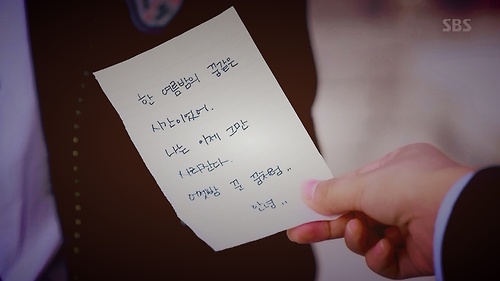 SBS
한 여름밤의 꿈같은
시간이었어.
나는 이제 그만
사라진다.
어젯밤 꾼 꿈처럼..
안녕..